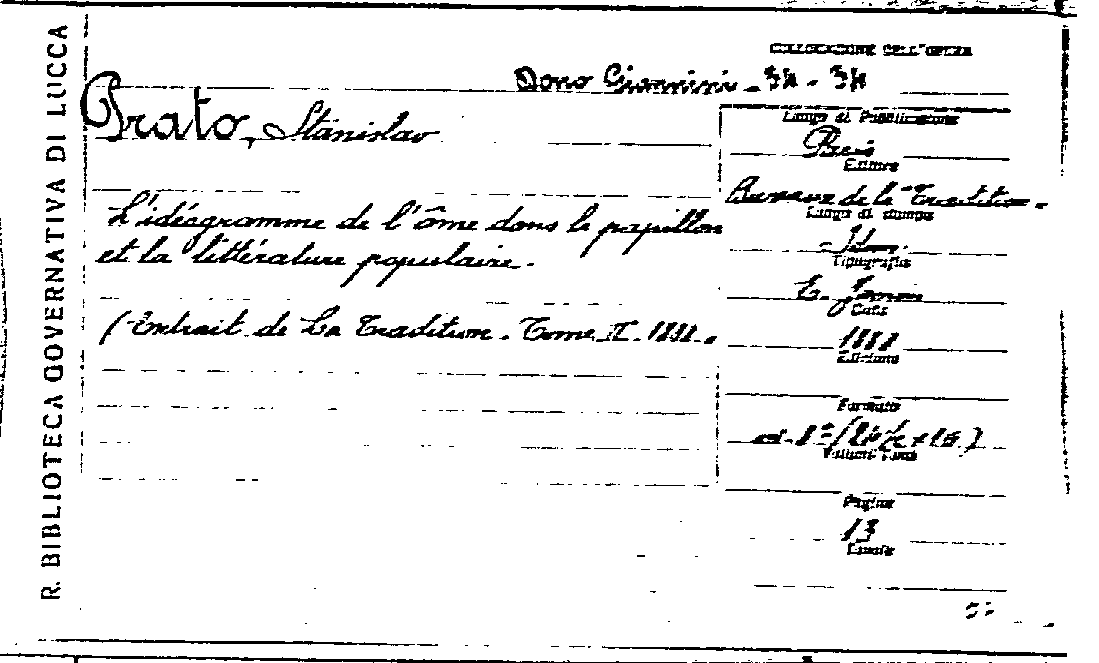 R. BIBLIOTECA GOVERNATIVA DI LUCCA
COLLOCAZIONE DELL'OPERA
Dono Giannini - 34 - 34
Prato, Stanislao
L'idéogramme de l'âme dans le papillon
et la littérature populaire.
(Extrait de La Tradition. Tome II. 1888.
Luogo di Pubblicazione
Paris
Editore
Bureaux de la Tradition.
Luogo di stampa
Idem.
Tipografia
E.
Data
1888
Edizione
Formato
in-8º
Volumi-Tomi
Pagine
13